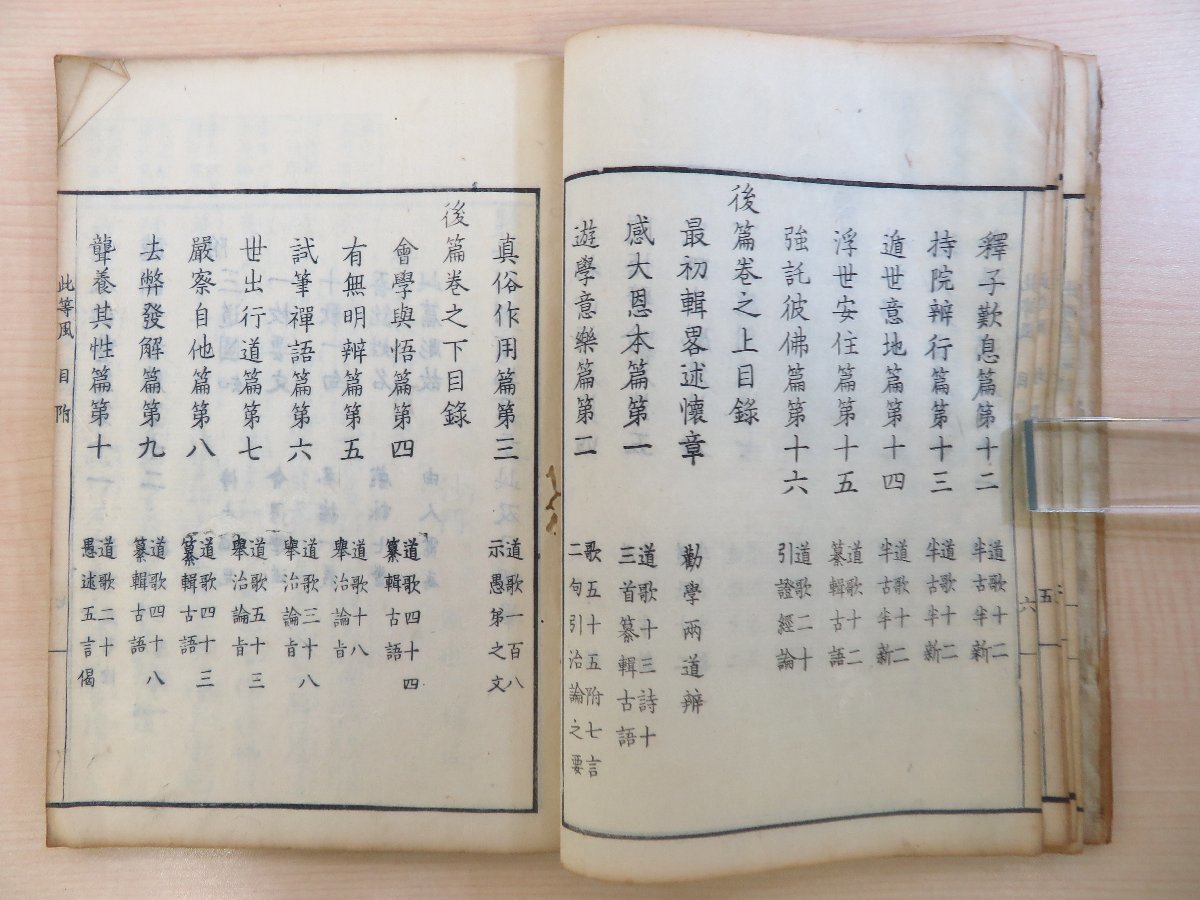 釋子歎息篇第十二 道歌十二半古半新
持院辨行篇第十三 道歌十二半古半新
遁世意地篇第十四 道歌十二半古半新
浮世安住篇第十五 道歌十二纂輯古語
強託彼佛篇第十六 道歌二十引證經論
後篇卷之上目錄
最初輯畧述懷章 勸學兩道辨
感大恩本篇第一 道歌十三詩十三首纂輯古語
遊學意樂篇第二 歌五十五附七言二句引治論之要
真俗作用篇第三 道歌一百八示愚弟之文
後篇卷之下目錄
會學與悟篇第四 道歌四十四纂輯古語
有無明辨篇第五 道歌十八舉治論旨
試筆禪語篇第六 道歌三十八舉治論旨
世出行道篇第七 道歌五十三舉治論旨
嚴察自他篇第八 道歌四十三纂輯古語
去弊發解篇第九 道歌四十八纂輯古語
聾養其性篇第十 道歌二十愚述五言偈
此等風 目 附
五
六